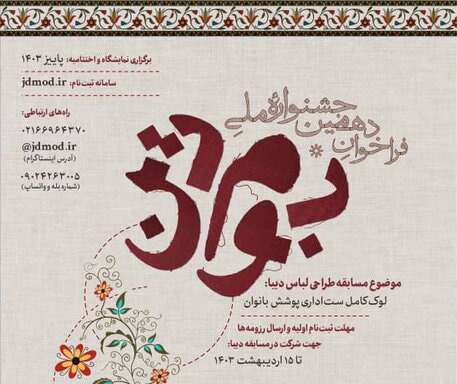 برگزاری نمایشگاه و اختتامیه: پاییز ۱۴۰۳
سامانه ثبت‌نام: jdmod.ir
راه‌های ارتباطی:
۰۲۱۶۶۹۶۴۳۷۰
@jdmod.ir
(آدرس اینستاگرام)
۰۹۰۲۴۲۶۳۰۰۵
(شماره بله و واتساپ)
فراخوان دهمین جشنوارهٔ ملی
بوم و تن
موضوع مسابقه طراحی لباس دیبا:
لوک کامل ست اداری پوشش بانوان
مهلت ثبت‌نام اولیه و ارسال رزومه‌ها
جهت شرکت در مسابقه دیبا:
تا ۱۵ اردیبهشت ۱۴۰۳